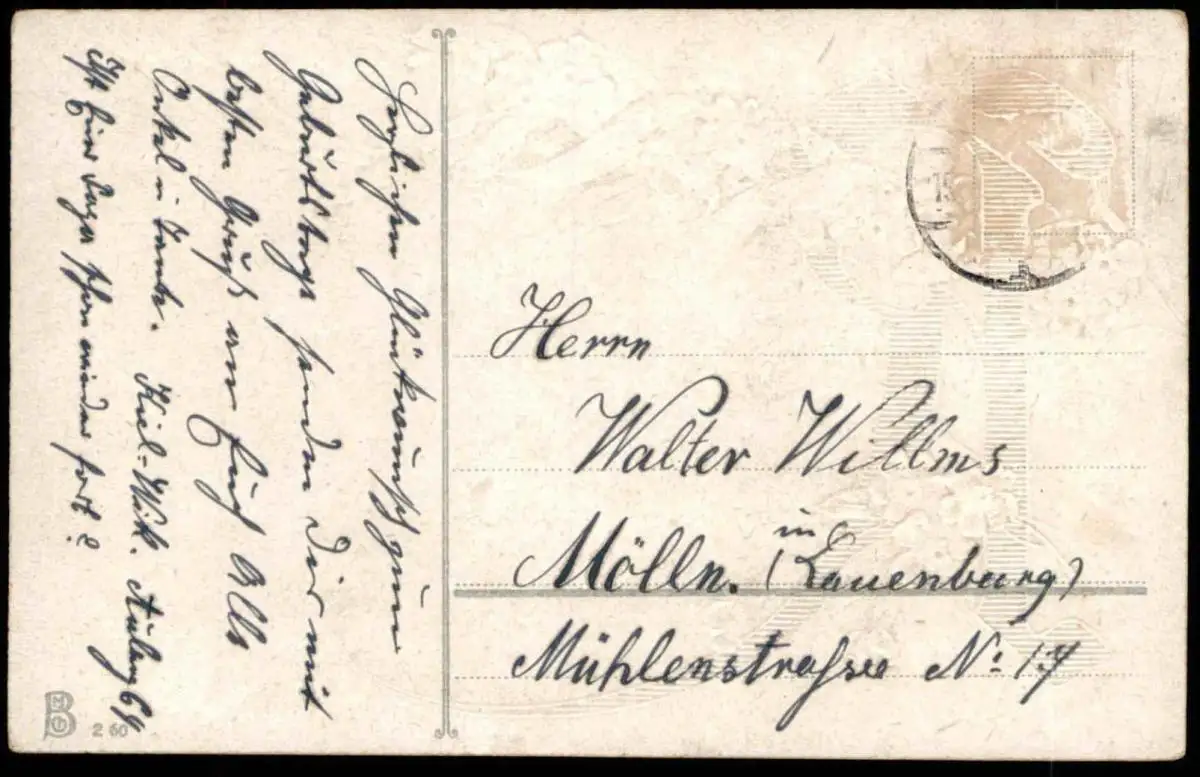 Herzlichen Glückwunsch zum
Geburtstage senden Dir mit
besten Gruß an Euch Alle
Onkel u Tante.
Kiel-Wik. 64
Ist schon wieder fort?
Herrn
Walter Willms
in
Mölln. (Lauenburg)
Mühlenstraſsse No 17
2 60